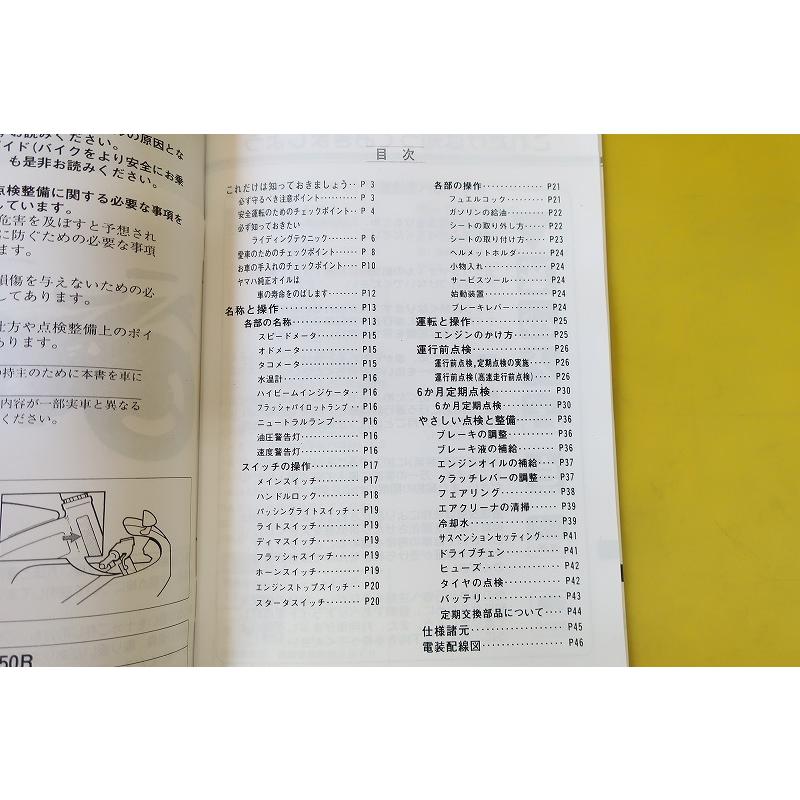 の原因とな
お読みください。
イド(バイクをより安全にお乗
も是非お読みください。
点検整備に関する必要な事項を
しています。
危害を及ぼすと予想され
に防ぐための必要な事項
ます。
損傷を与えないための必
してあります。
仕方や点検整備上のポイ
あります。
の持主のために本書を車に
内容が一部実車と異なる
ください。
50R
目 次
これだけは知っておきましょう‥P 3
必ず守るべき注意ポイント‥‥‥P 3
安全運転のためのチェックポイント‥P 4
必ず知っておきたい
ライディングテクニック‥‥P 6
愛車のためのチェックポイント‥‥P 8
お車の手入れのチェックポイント‥P10
ヤマハ純正オイルは
車の寿命をのばします‥‥P12
名称と操作‥‥‥‥‥‥‥P13
各部の名称‥‥‥‥‥‥P13
スピードメータ‥‥‥‥P15
オドメータ‥‥‥‥‥‥P15
タコメータ‥‥‥‥‥‥P15
水温計‥‥‥‥‥‥‥‥P16
ハイビームインジケータ‥‥P16
フラッシャパイロットランプ‥‥P16
ニュートラルランプ‥‥‥P16
油圧警告灯‥‥‥‥‥‥P16
速度警告灯‥‥‥‥‥‥P16
スイッチの操作‥‥‥‥‥P17
メインスイッチ‥‥‥‥P17
ハンドルロック‥‥‥‥P18
パッシングライトスイッチ‥‥P19
ライトスイッチ‥‥‥‥P19
ディマスイッチ‥‥‥‥P19
フラッシャスイッチ‥‥‥P19
ホーンスイッチ‥‥‥‥P19
エンジンストップスイッチ‥‥P20
スタータスイッチ‥‥‥‥P20
各部の操作‥‥‥‥‥‥‥P21
フュエルコック‥‥‥‥‥P21
ガソリンの給油‥‥‥‥‥P22
シートの取り外し方‥‥‥P22
シートの取り付け方‥‥‥P23
ヘルメットホルダ‥‥‥‥P24
小物入れ‥‥‥‥‥‥‥P24
サービスツール‥‥‥‥‥P24
始動装置‥‥‥‥‥‥‥P24
ブレーキレバー‥‥‥‥‥P24
運転と操作‥‥‥‥‥‥‥P25
エンジンのかけ方‥‥‥‥P25
運行前点検‥‥‥‥‥‥‥P26
運行前点検,定期点検の実施‥‥P26
運行前点検(高速走行前点検)‥‥P26
6か月定期点検‥‥‥‥‥‥P30
6か月定期点検‥‥‥‥‥P30
やさしい点検と整備‥‥‥‥P36
ブレーキの調整‥‥‥‥‥P36
ブレーキ液の補給‥‥‥‥P36
エンジンオイルの補給‥‥P37
クラッチレバーの調整‥‥P37
フェアリング‥‥‥‥‥‥P38
エアクリーナの清掃‥‥‥P39
冷却水‥‥‥‥‥‥‥‥P39
サスペンションセッティング‥‥P41
ドライブチェン‥‥‥‥‥P41
ヒューズ‥‥‥‥‥‥‥P42
タイヤの点検‥‥‥‥‥‥P42
バッテリ‥‥‥‥‥‥‥P43
定期交換部品について‥‥P44
仕様諸元‥‥‥‥‥‥‥‥P45
電装配線図‥‥‥‥‥‥‥P46